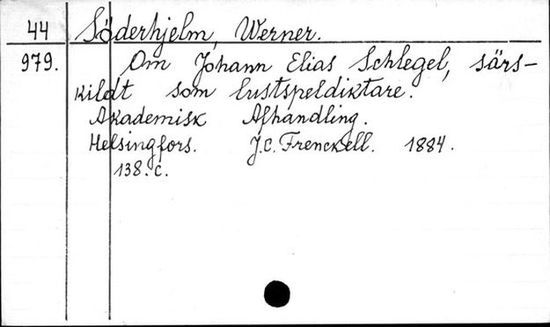 44 Söderhjelm, Werner.
979. Om Johann Elias Schlegel, särs-
kildt som lustspeldiktare.
Akademisk Afhandling.
Helsingfors. J.C. Frenckell. 1884.
138.c.